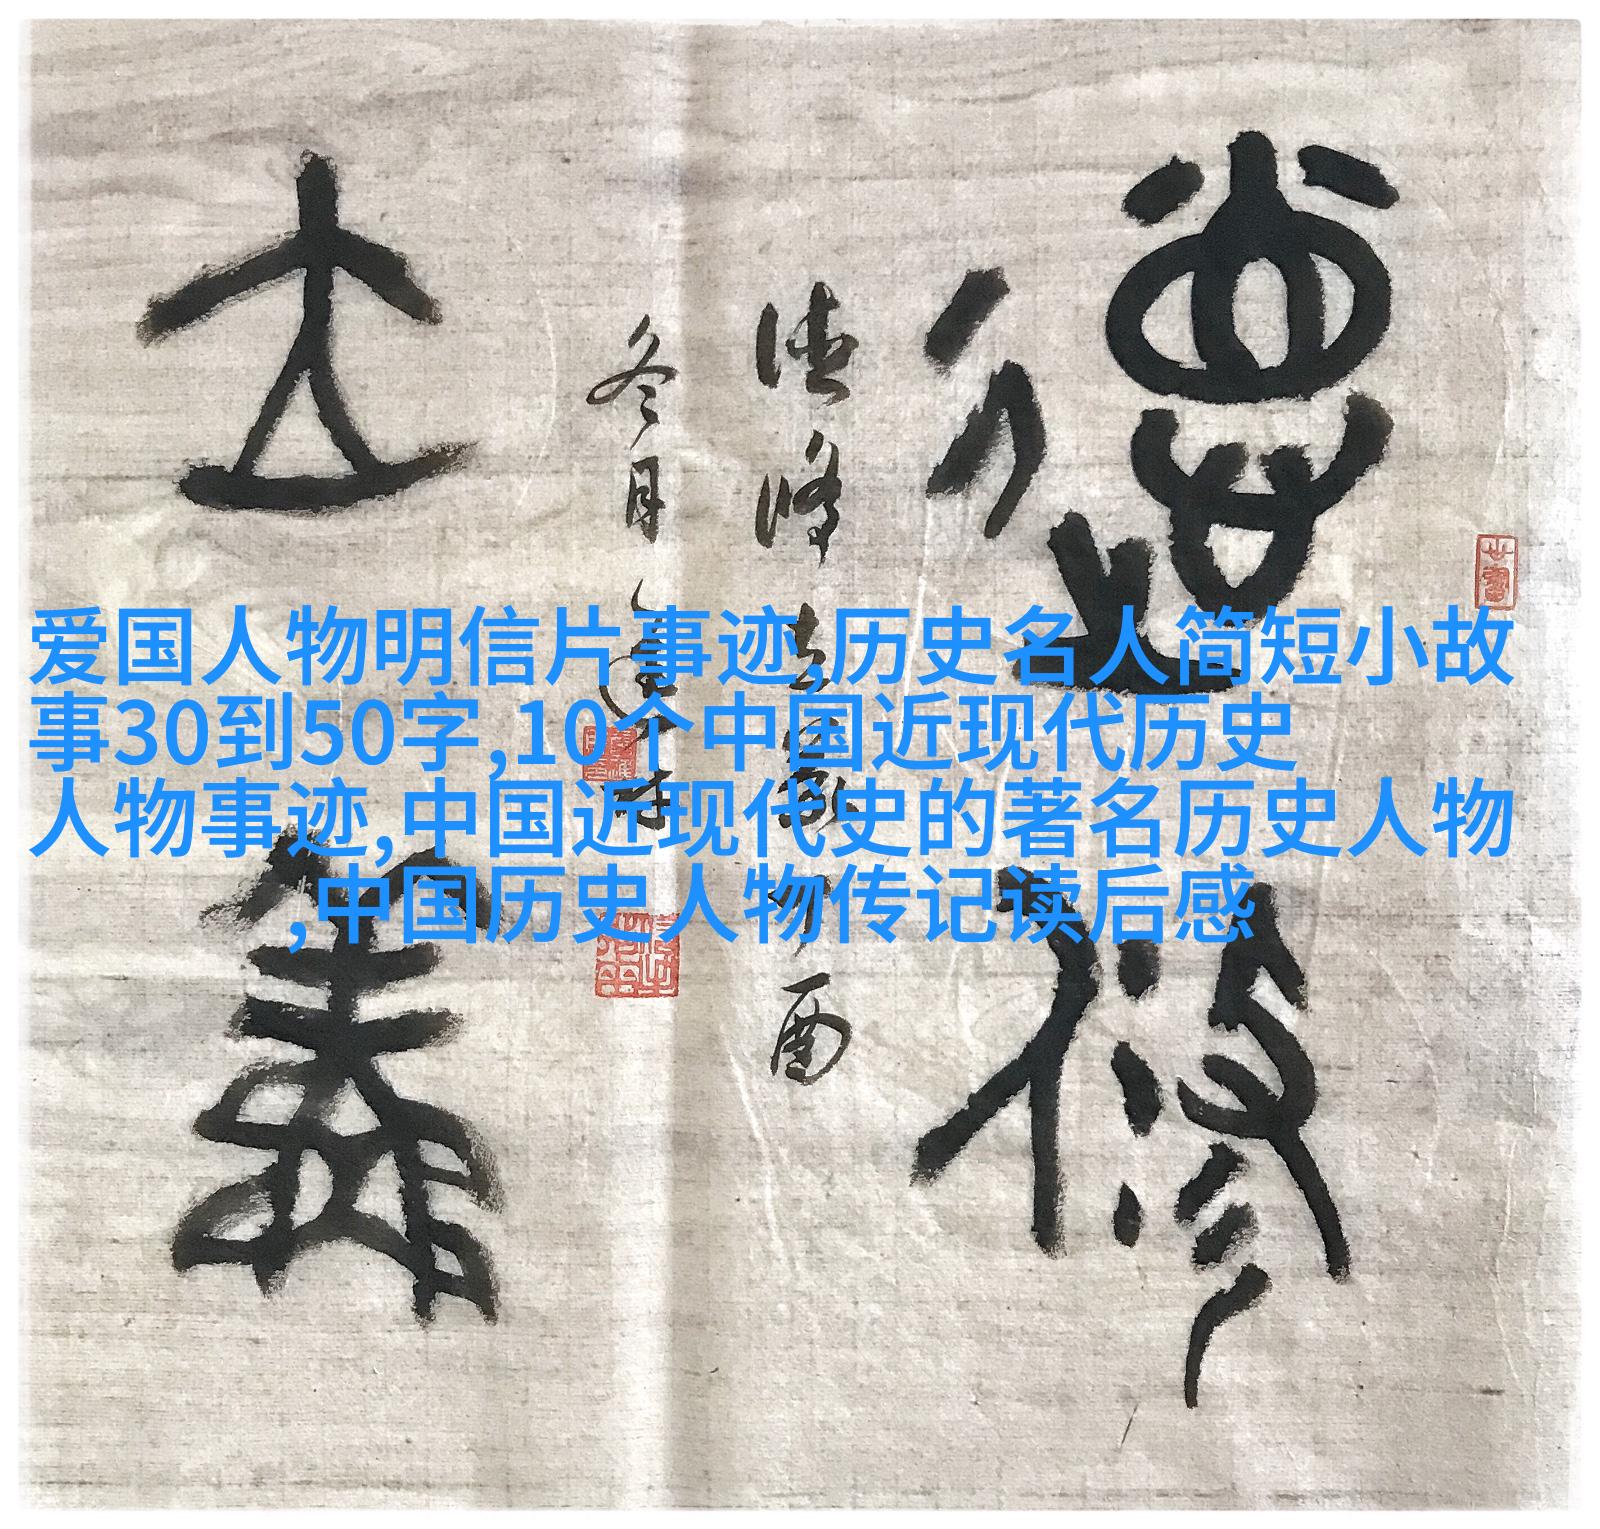 爱国人物明信片事迹,历史名人简短小故
事30到50字,10个中国近现代历史
人物事迹,中国近现代史的著名历史人物
,中国历史人物传记读后感
德修
德修立義丁酉
冬月
立義